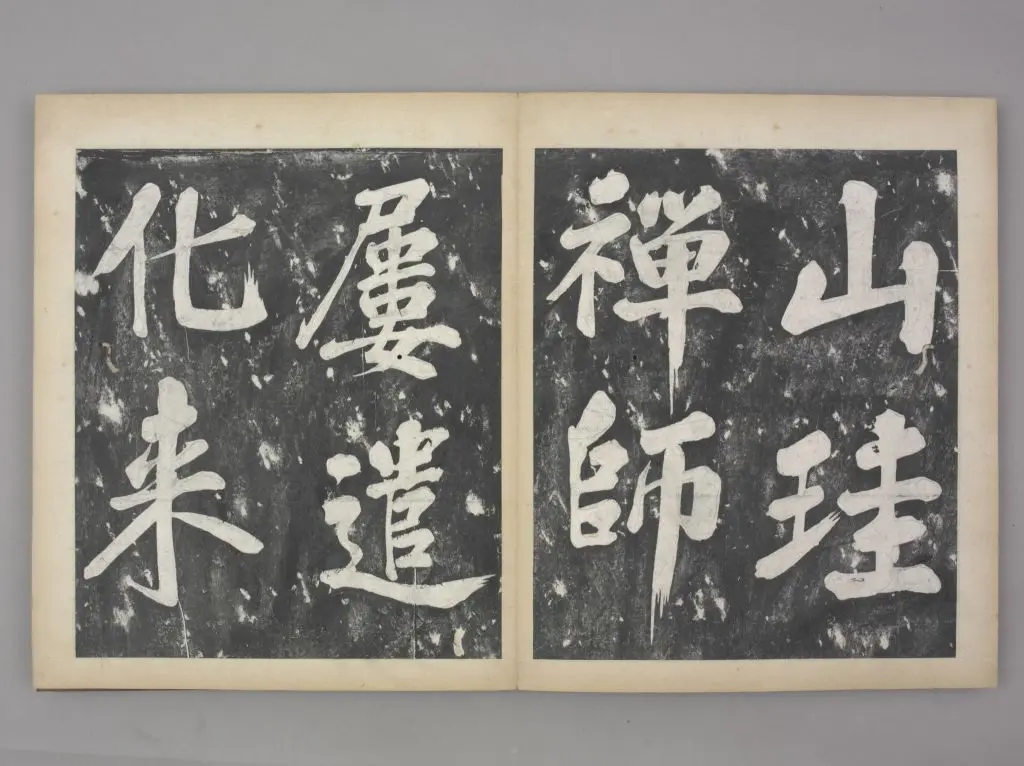 山珪
禪師
屢遣
化来